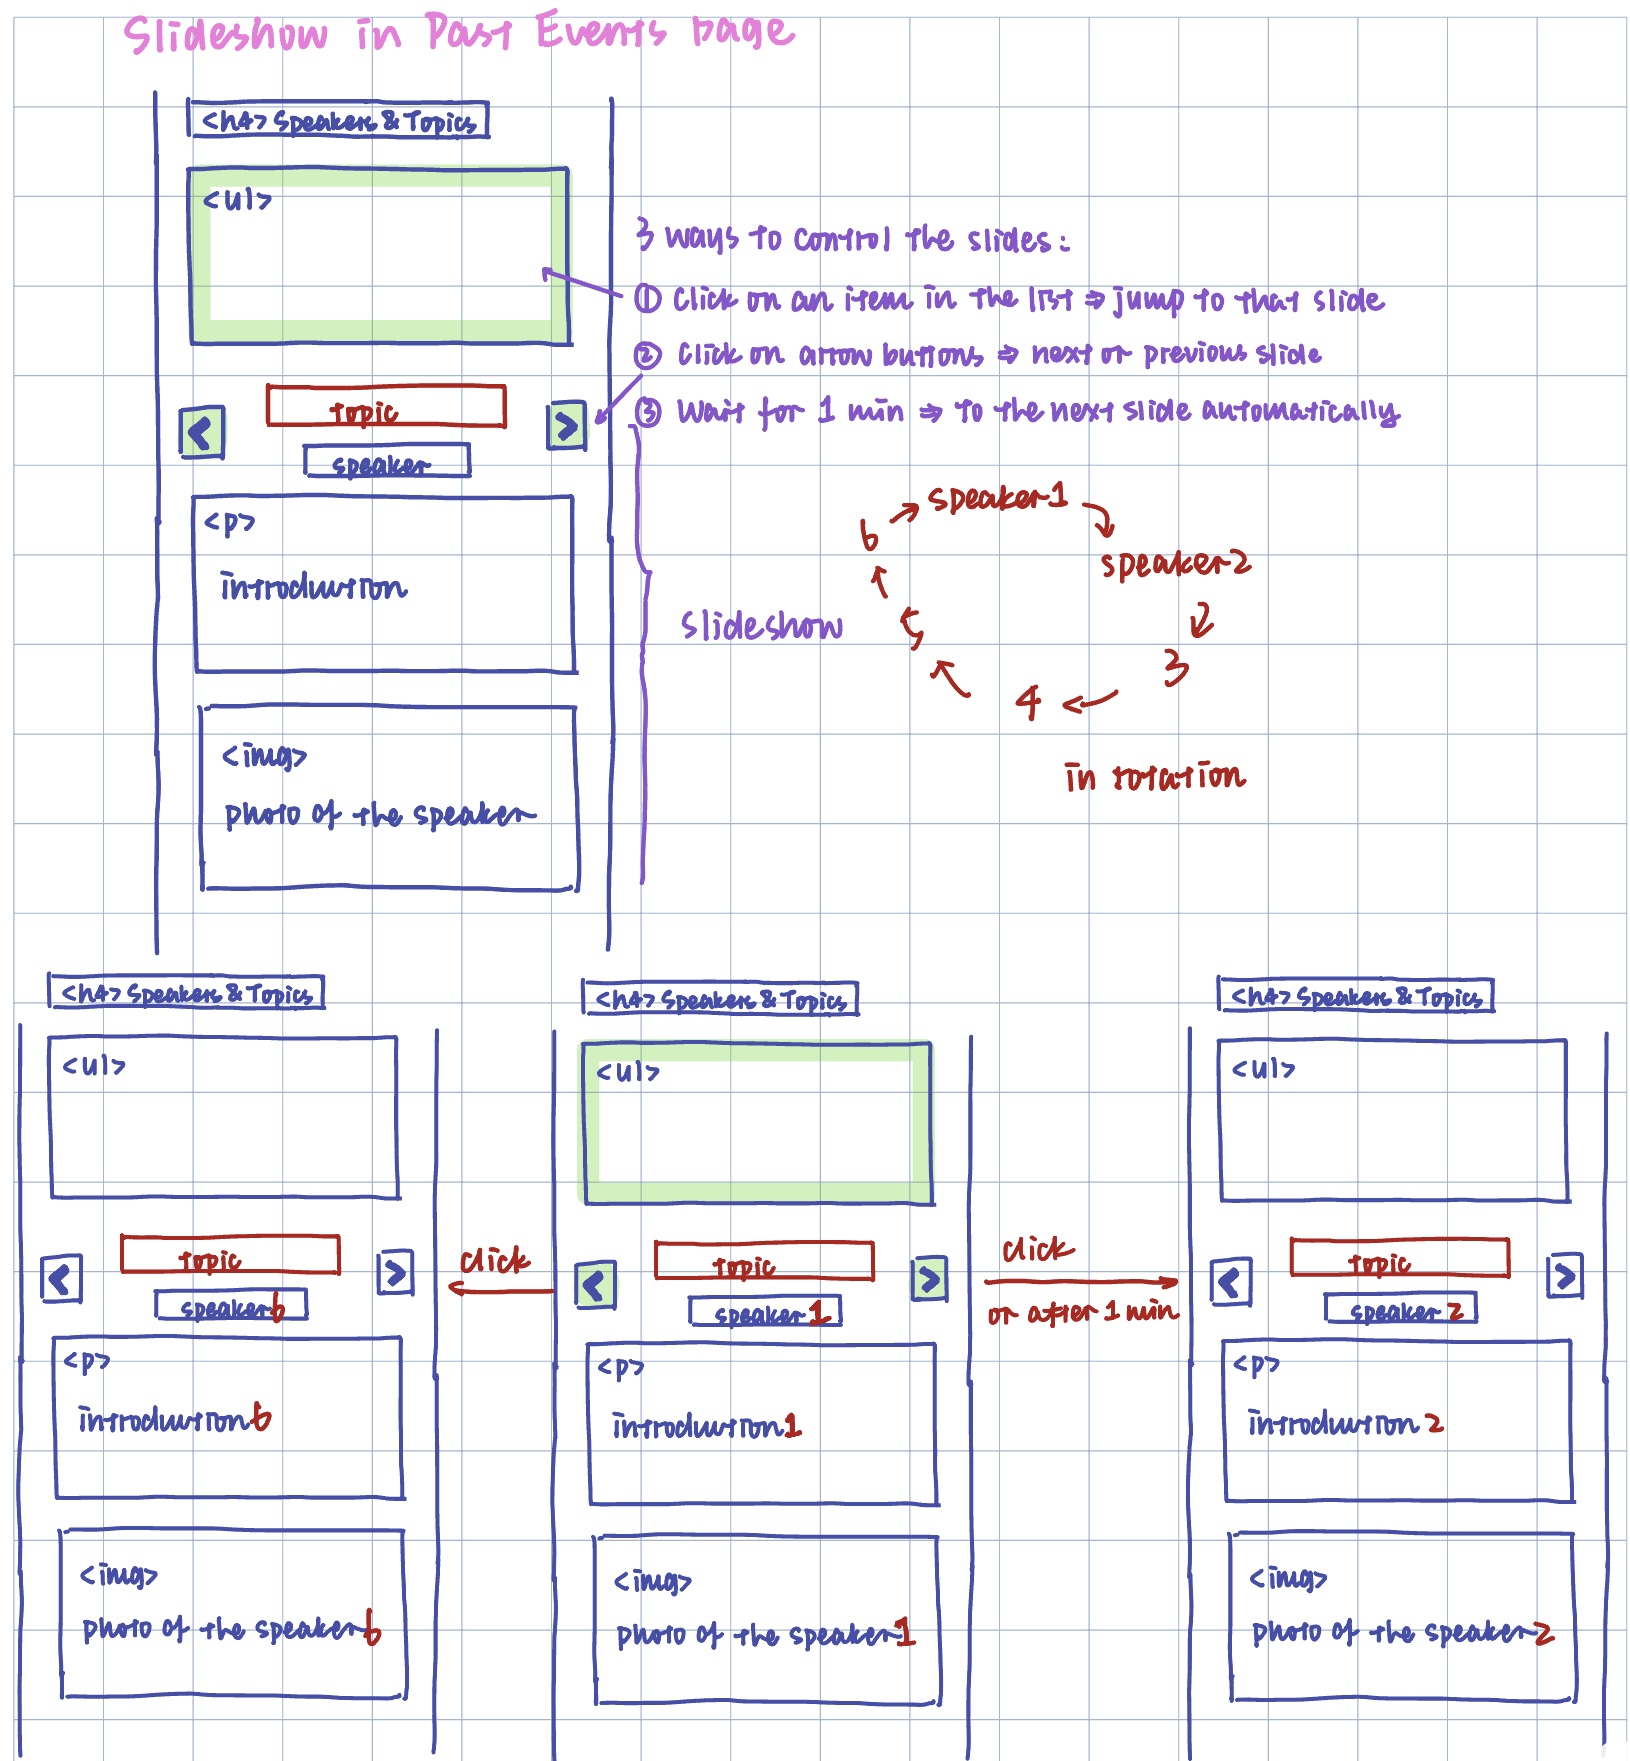 Slideshow in Past Events page
<h4> Speakers & Topics
<ul>
3 ways to control the slides:
① Click on an item in the list ⇒ jump to that slide
② Click on arrow buttons ⇒ next or previous slide
③ Wait for 1 min ⇒ to the next slide automatically
<
topic
>
speaker
<p>
introduction
slideshow
speaker1
speaker2
3
4
5
6
in rotation
<img>
photo of the speaker
<h4> Speakers & Topics
<ul>
<
topic
>
speaker6
<p>
introduction6
<img>
photo of the speaker6
click
<h4> Speakers & Topics
<ul>
<
topic
>
speaker 1
<p>
introduction1
<img>
photo of the speaker1
click
or after 1 min
<h4> Speakers & Topics
<ul>
<
topic
>
speaker 2
<p>
introduction 2
<img>
photo of the speaker2